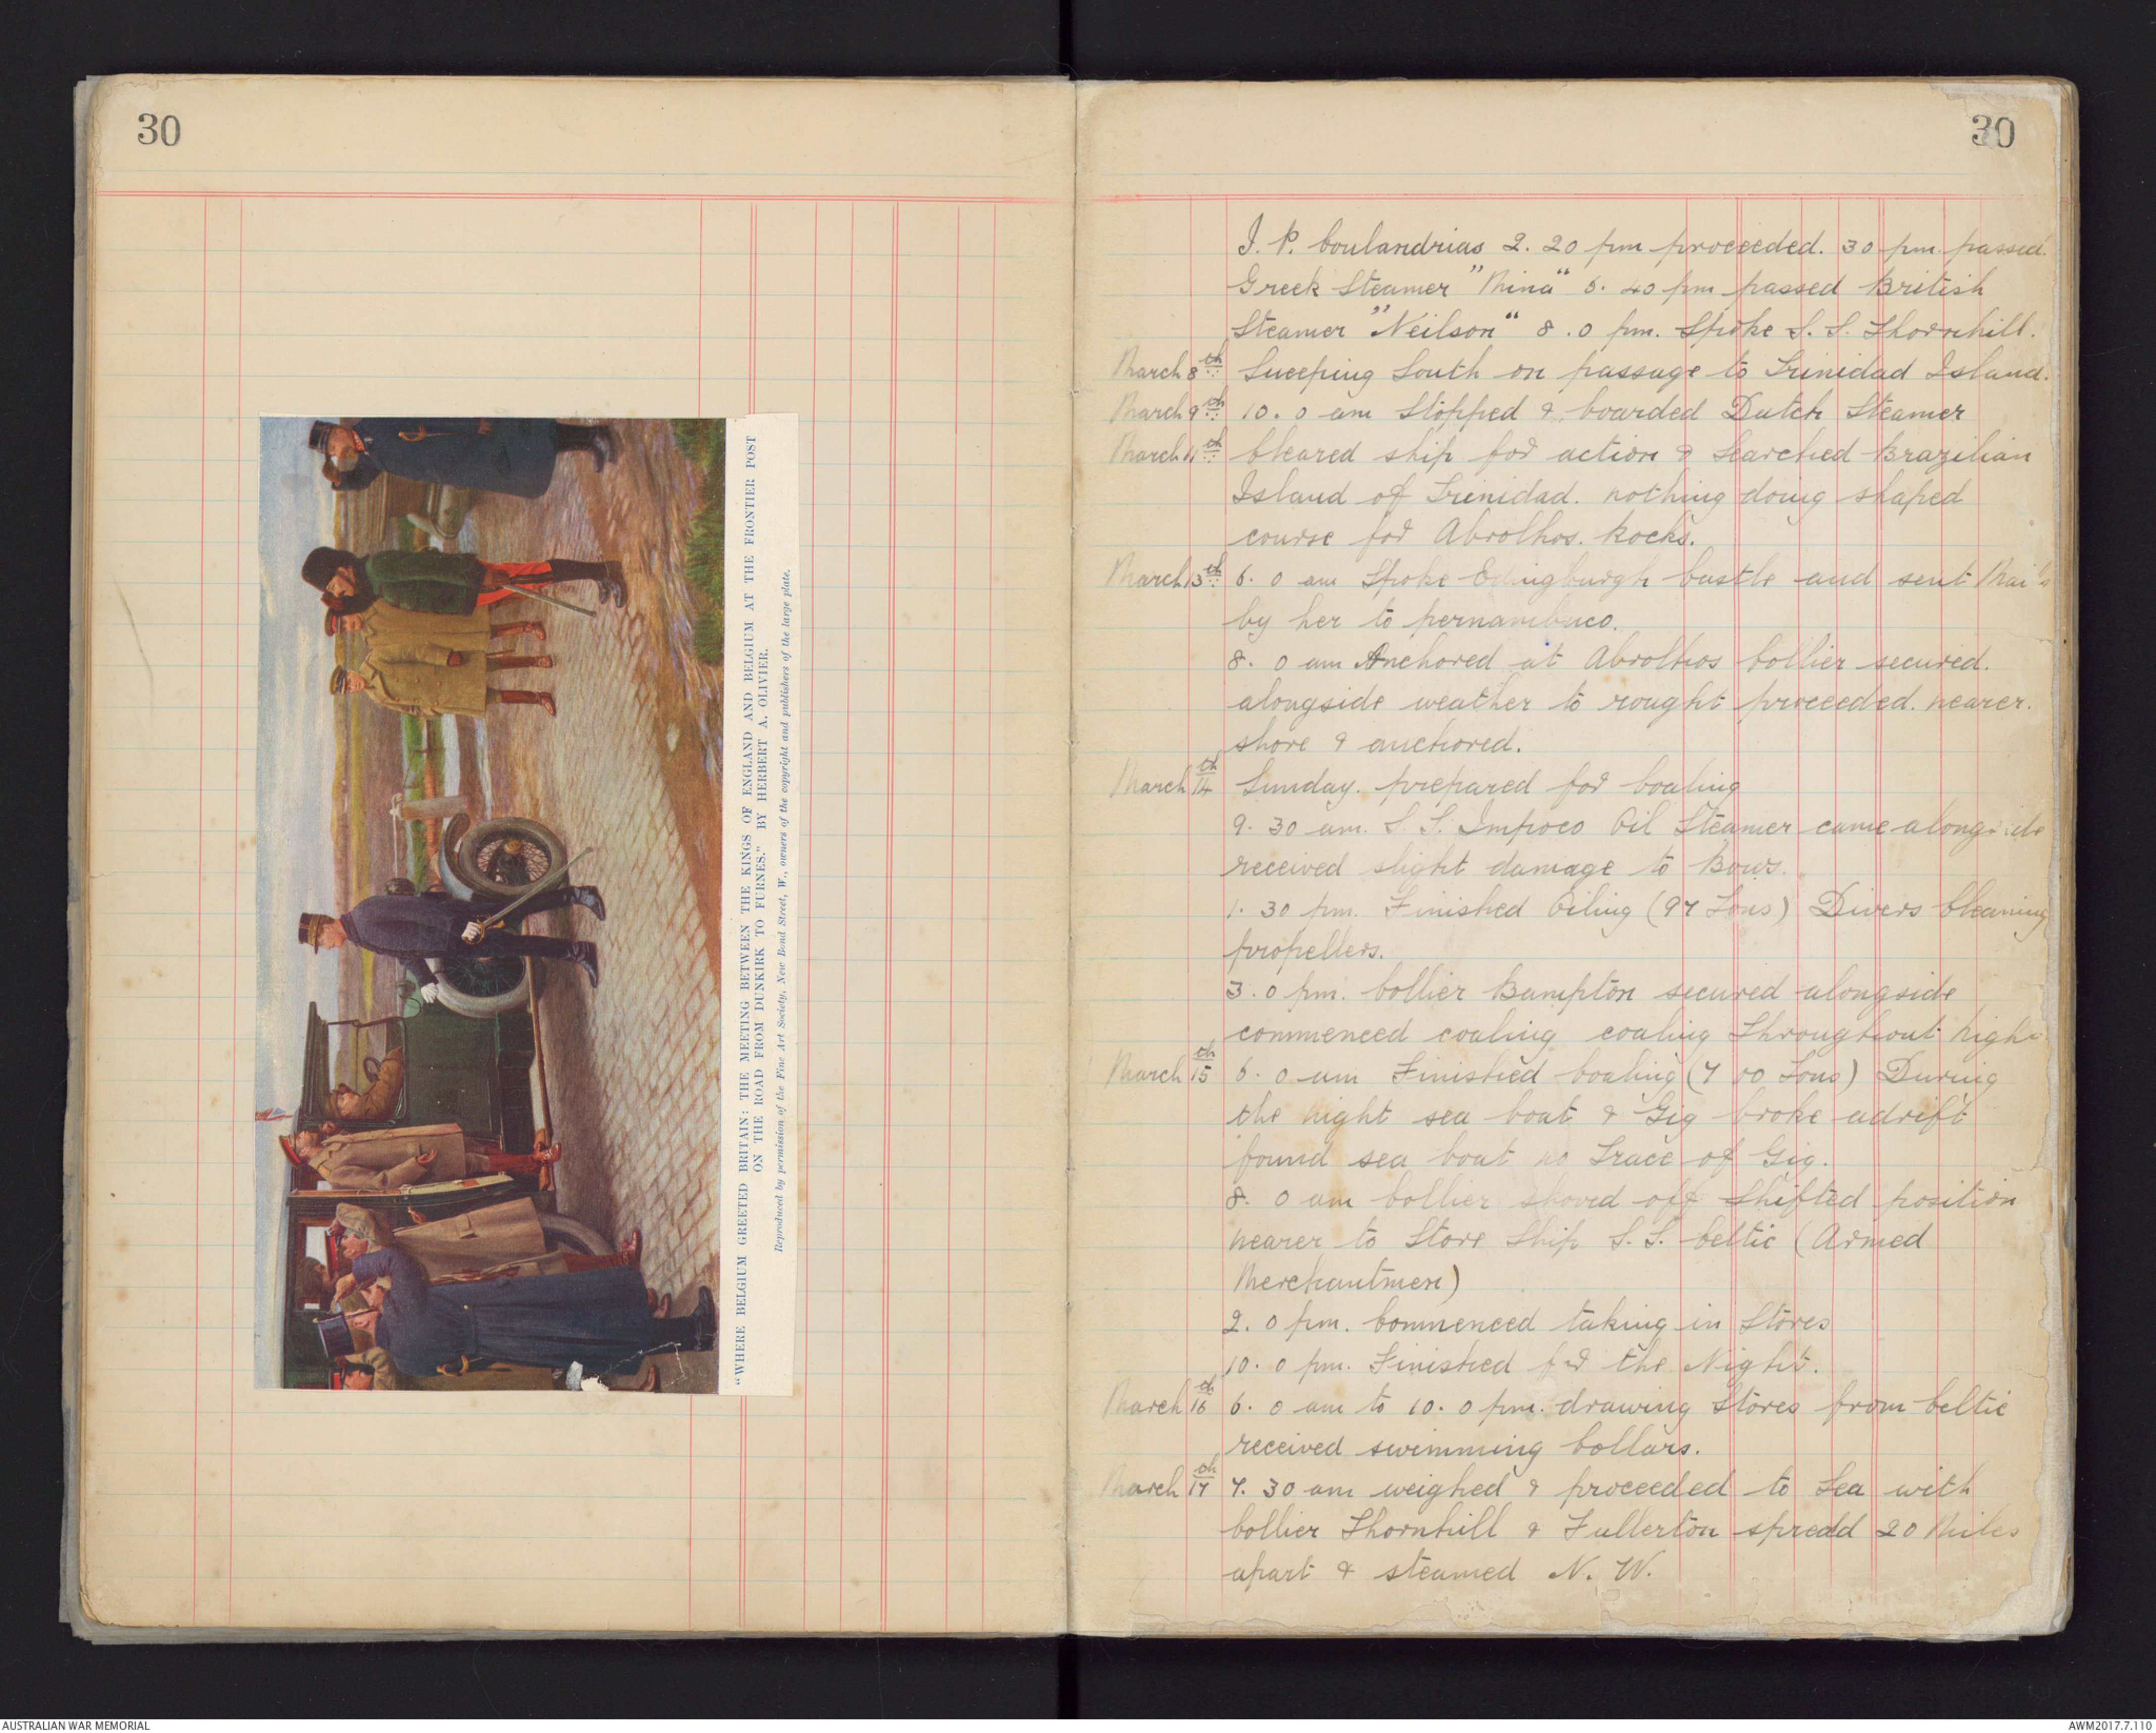 30
"WHERE BELGIUM GREETED BRITAIN: THE MEETING BETWEEN THE KINGS OF ENGLAND AND BELGIUM AT THE FRONTIER POST
ON THE ROAD FROM DUNKIRK TO FURNES." BY HERBERT A. OLIVIER.
Reproduced by permission of the Fine Art Society, New Bond Street, W., owners of the copyright and publishers of the large plate.
30
J. P. Coulandrias 2. 20 pm proceeded. 30 pm. passed
Greek Steamer "Mina" 5. 40 pm passed British
Steamer "Neilson" 8. 0 pm. Spoke S. S. Thornhill.
March 8th Sweeping South on passage to Trinidad Island.
March 9th 10. 0 am Stopped & boarded Dutch Steamer
March 11th Cleared ship for action & Searched Brazilian
Island of Trinidad. nothing doing shaped
course for Abrolhos. Rocks.
March 13th 6. 0 am Spoke Edingburgh Castle and sent Mails
by her to pernambuco.
8. 0 am Anchored at Abrolhos Collier secured.
alongside weather to rought proceeded. nearer.
shore & anchored.
March 14th Sunday. prepared for Coaling
9. 30 am. S. S. Impoco Oil Steamer came alongside
received slight damage to Bows.
1. 30 pm. Finished Oiling (97 Tons) Divers Cleaning
propellers.
3. 0 pm. Collier Bampton secured alongside
commenced coaling coaling Throughout night
March 15th 6. 0 am Finished Coaling (700 Tons) During
the night sea boat & Gig broke adrift
found sea boat no Trace of Gig.
8. 0 am Collier shoved off Shifted position
nearer to Store Ship S. S. Celtic (Armed
Merchantmen)
2. 0 pm. Commenced taking in Stores
10. 0 pm. Finished for the Night.
March 16th 6. 0 am to 10. 0 pm. drawing Stores from Celtic
received swimming Collars.
March 17th 7. 30 am weighed & proceeded to Sea with
Collier Thornhill & Fullerton spredd 20 Miles
apart & steamed N. W.
AUSTRALIAN WAR MEMORIAL
AWM2017.7.110